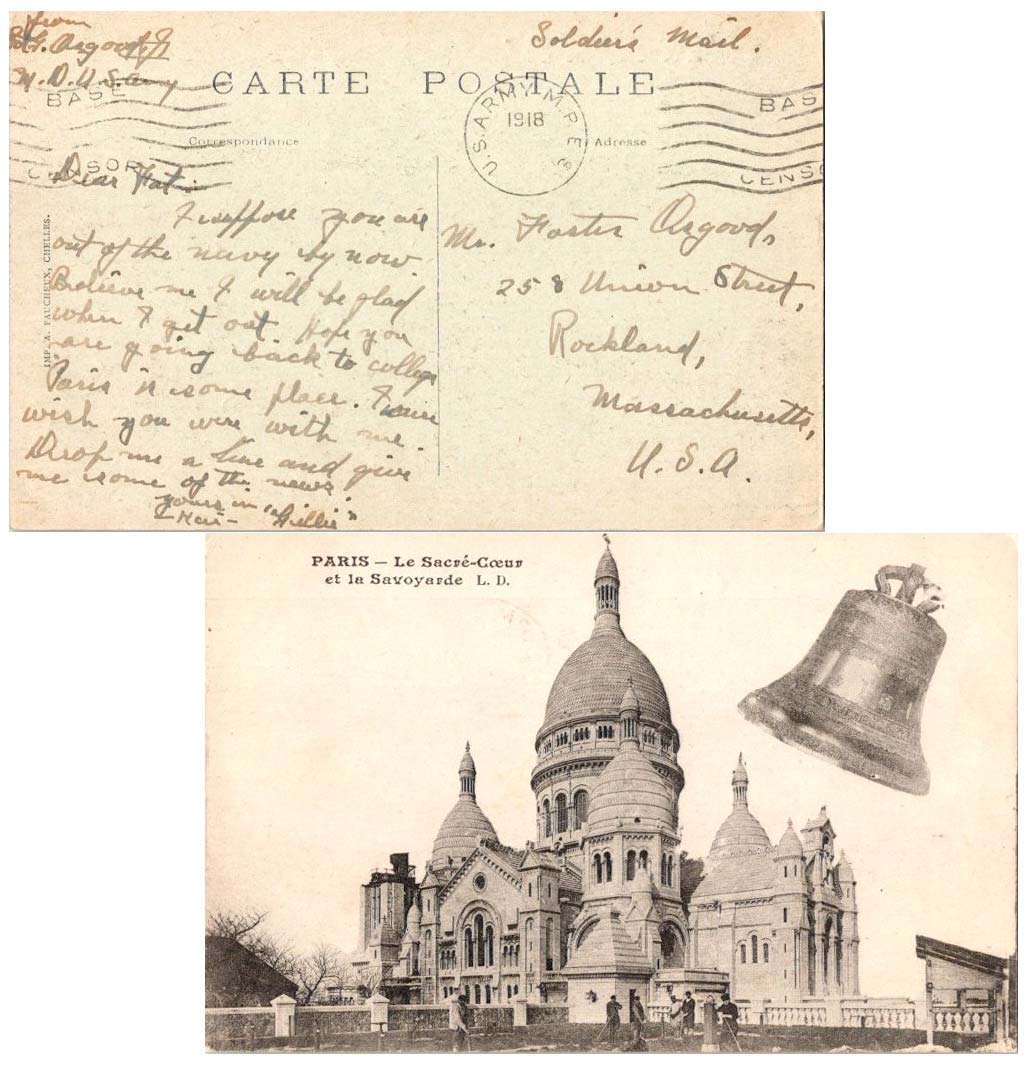 from
G. Osgood
M. D. U. S. Army
Soldier's Mail.
CARTE POSTALE
BASE
CENSOR
U.S. ARMY M.P.E.
1918
BAS
CENSO
Correspondance
Adresse
IMP. A. FAUCHEUX, CHELLES.
Dear Fat:
I suppose you are
out of the navy by now.
Believe me I will be glad
when I get out. Hope you
are going back to college
Paris is some place. I sure
wish you were with me.
Drop me a line and give
me some of the news
yours in
Mr. Foster Osgood,
258 Union Street,
Rockland,
Massachusetts,
U. S. A.
PARIS — Le Sacré-Cœur
et la Savoyarde L. D.